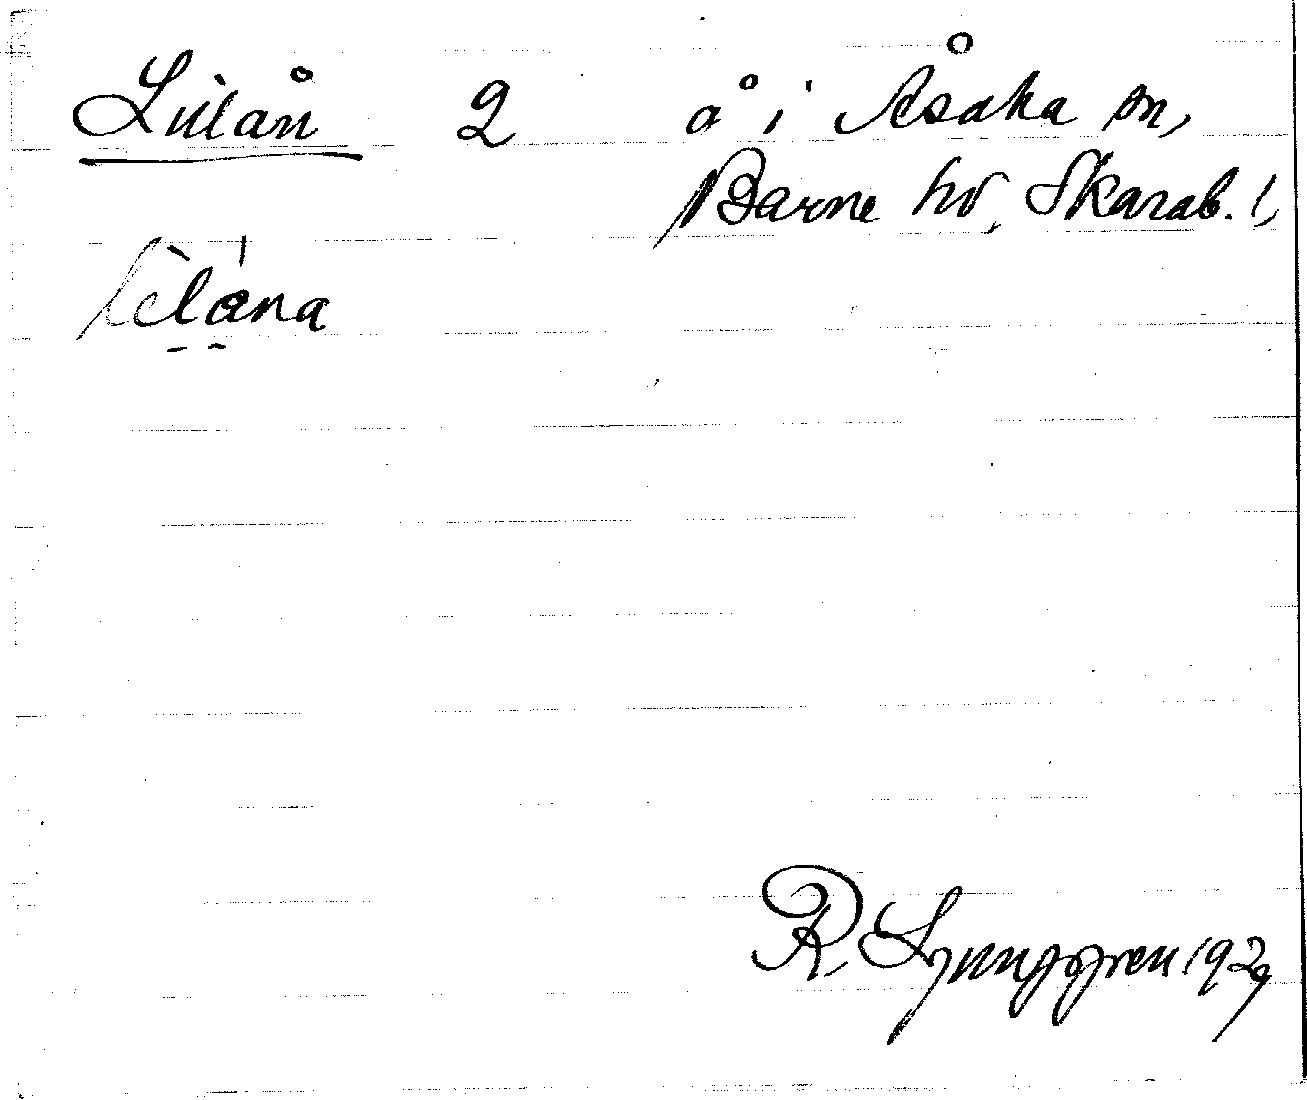 Lillån 2 å i Åsaka sn,
Barne hd, Skarab. l,
lilåna
R. Ljunggren 1929